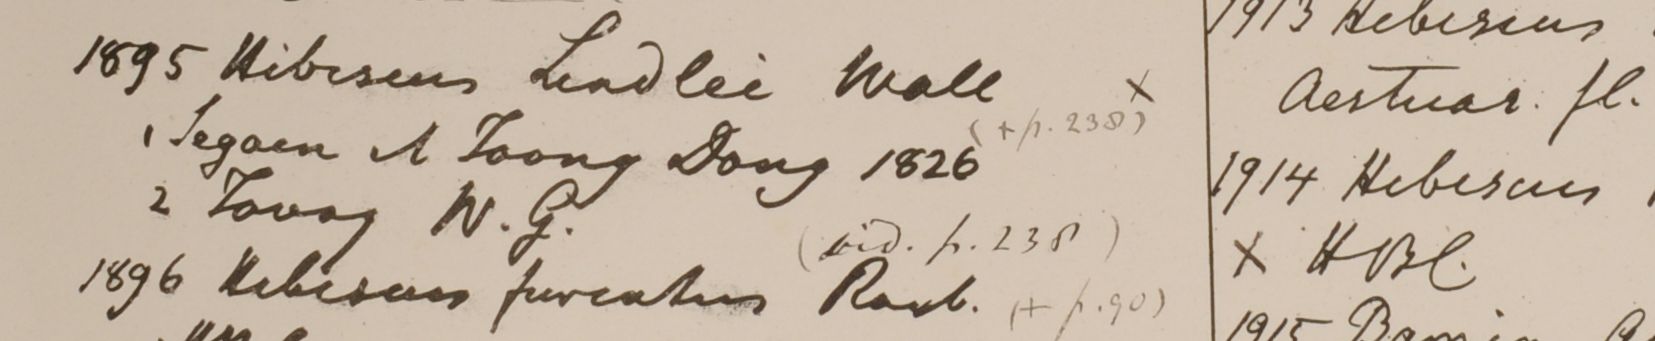 1895 Hibiscus Lindlei Wall ×
(+ p. 238)
1 Segaen A Toong Dong 1826
2 Tavoy W. G.
(vid. p. 238)
1896 Hibiscus furcatus Roxb. (+ p. 90)
1913 Hibiscus
Aestuar. fl.
1914 Hibiscus
× HBC.
1915